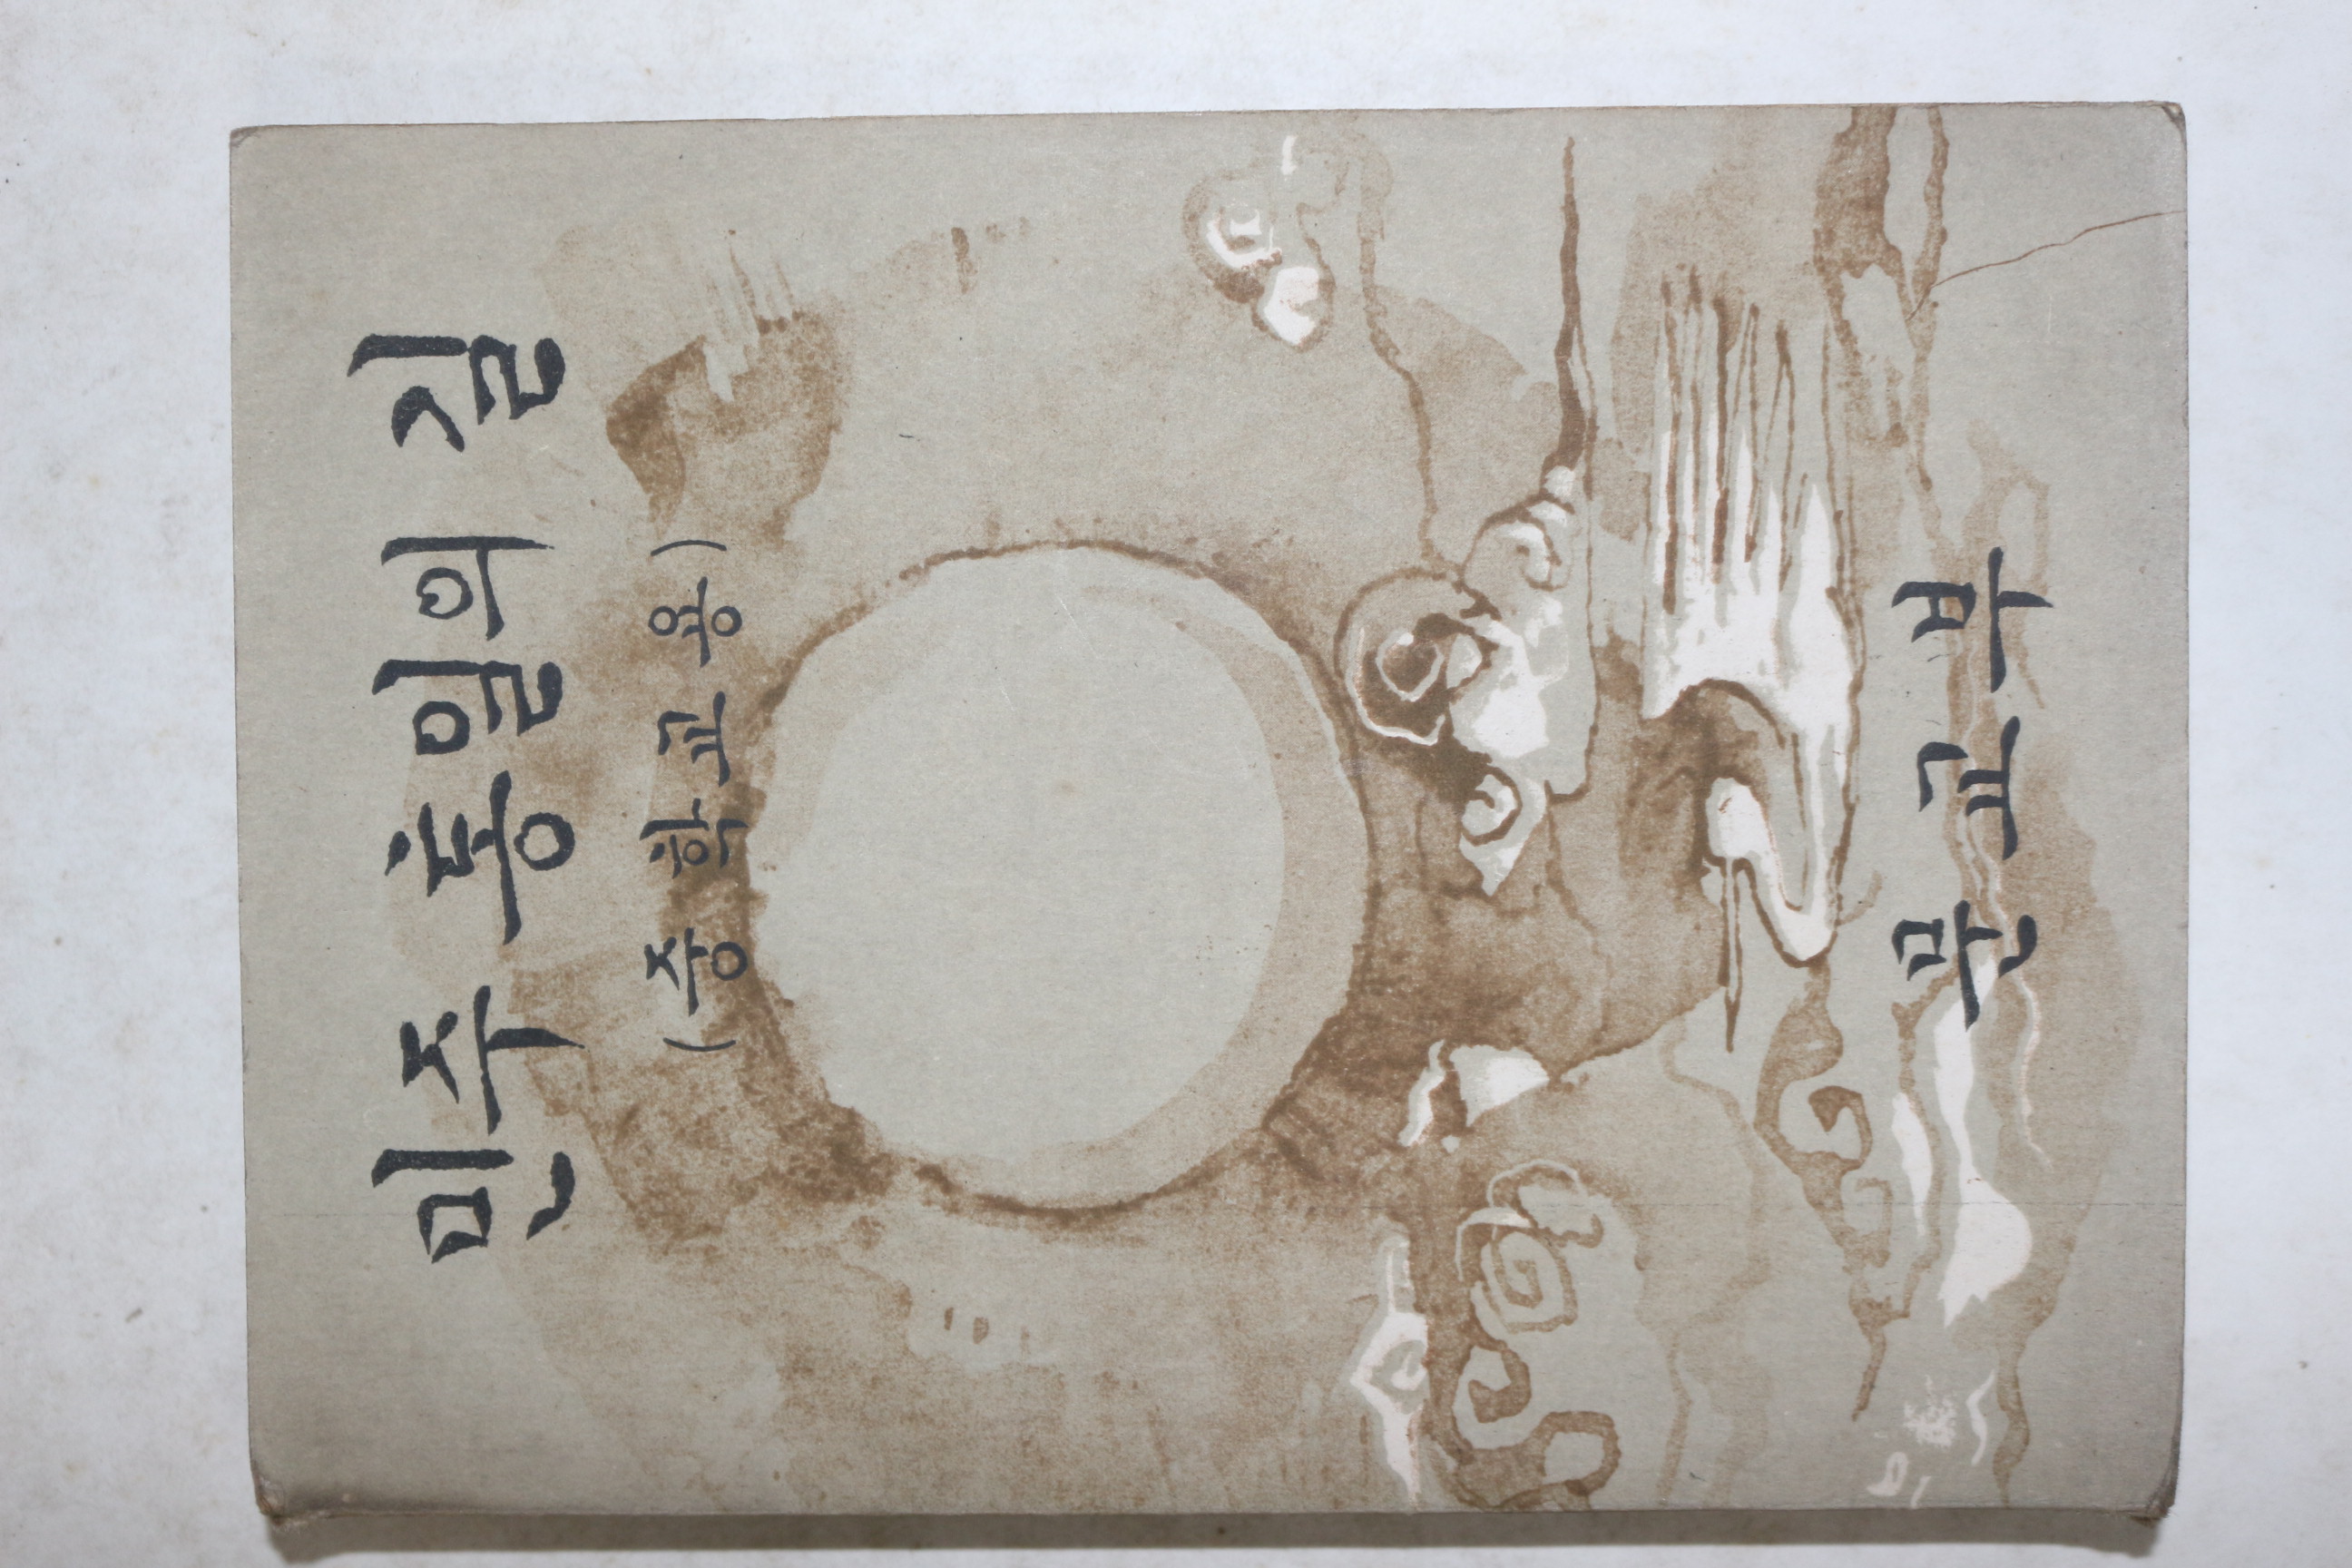 민주 통일의 길
(중학교용)
문교부